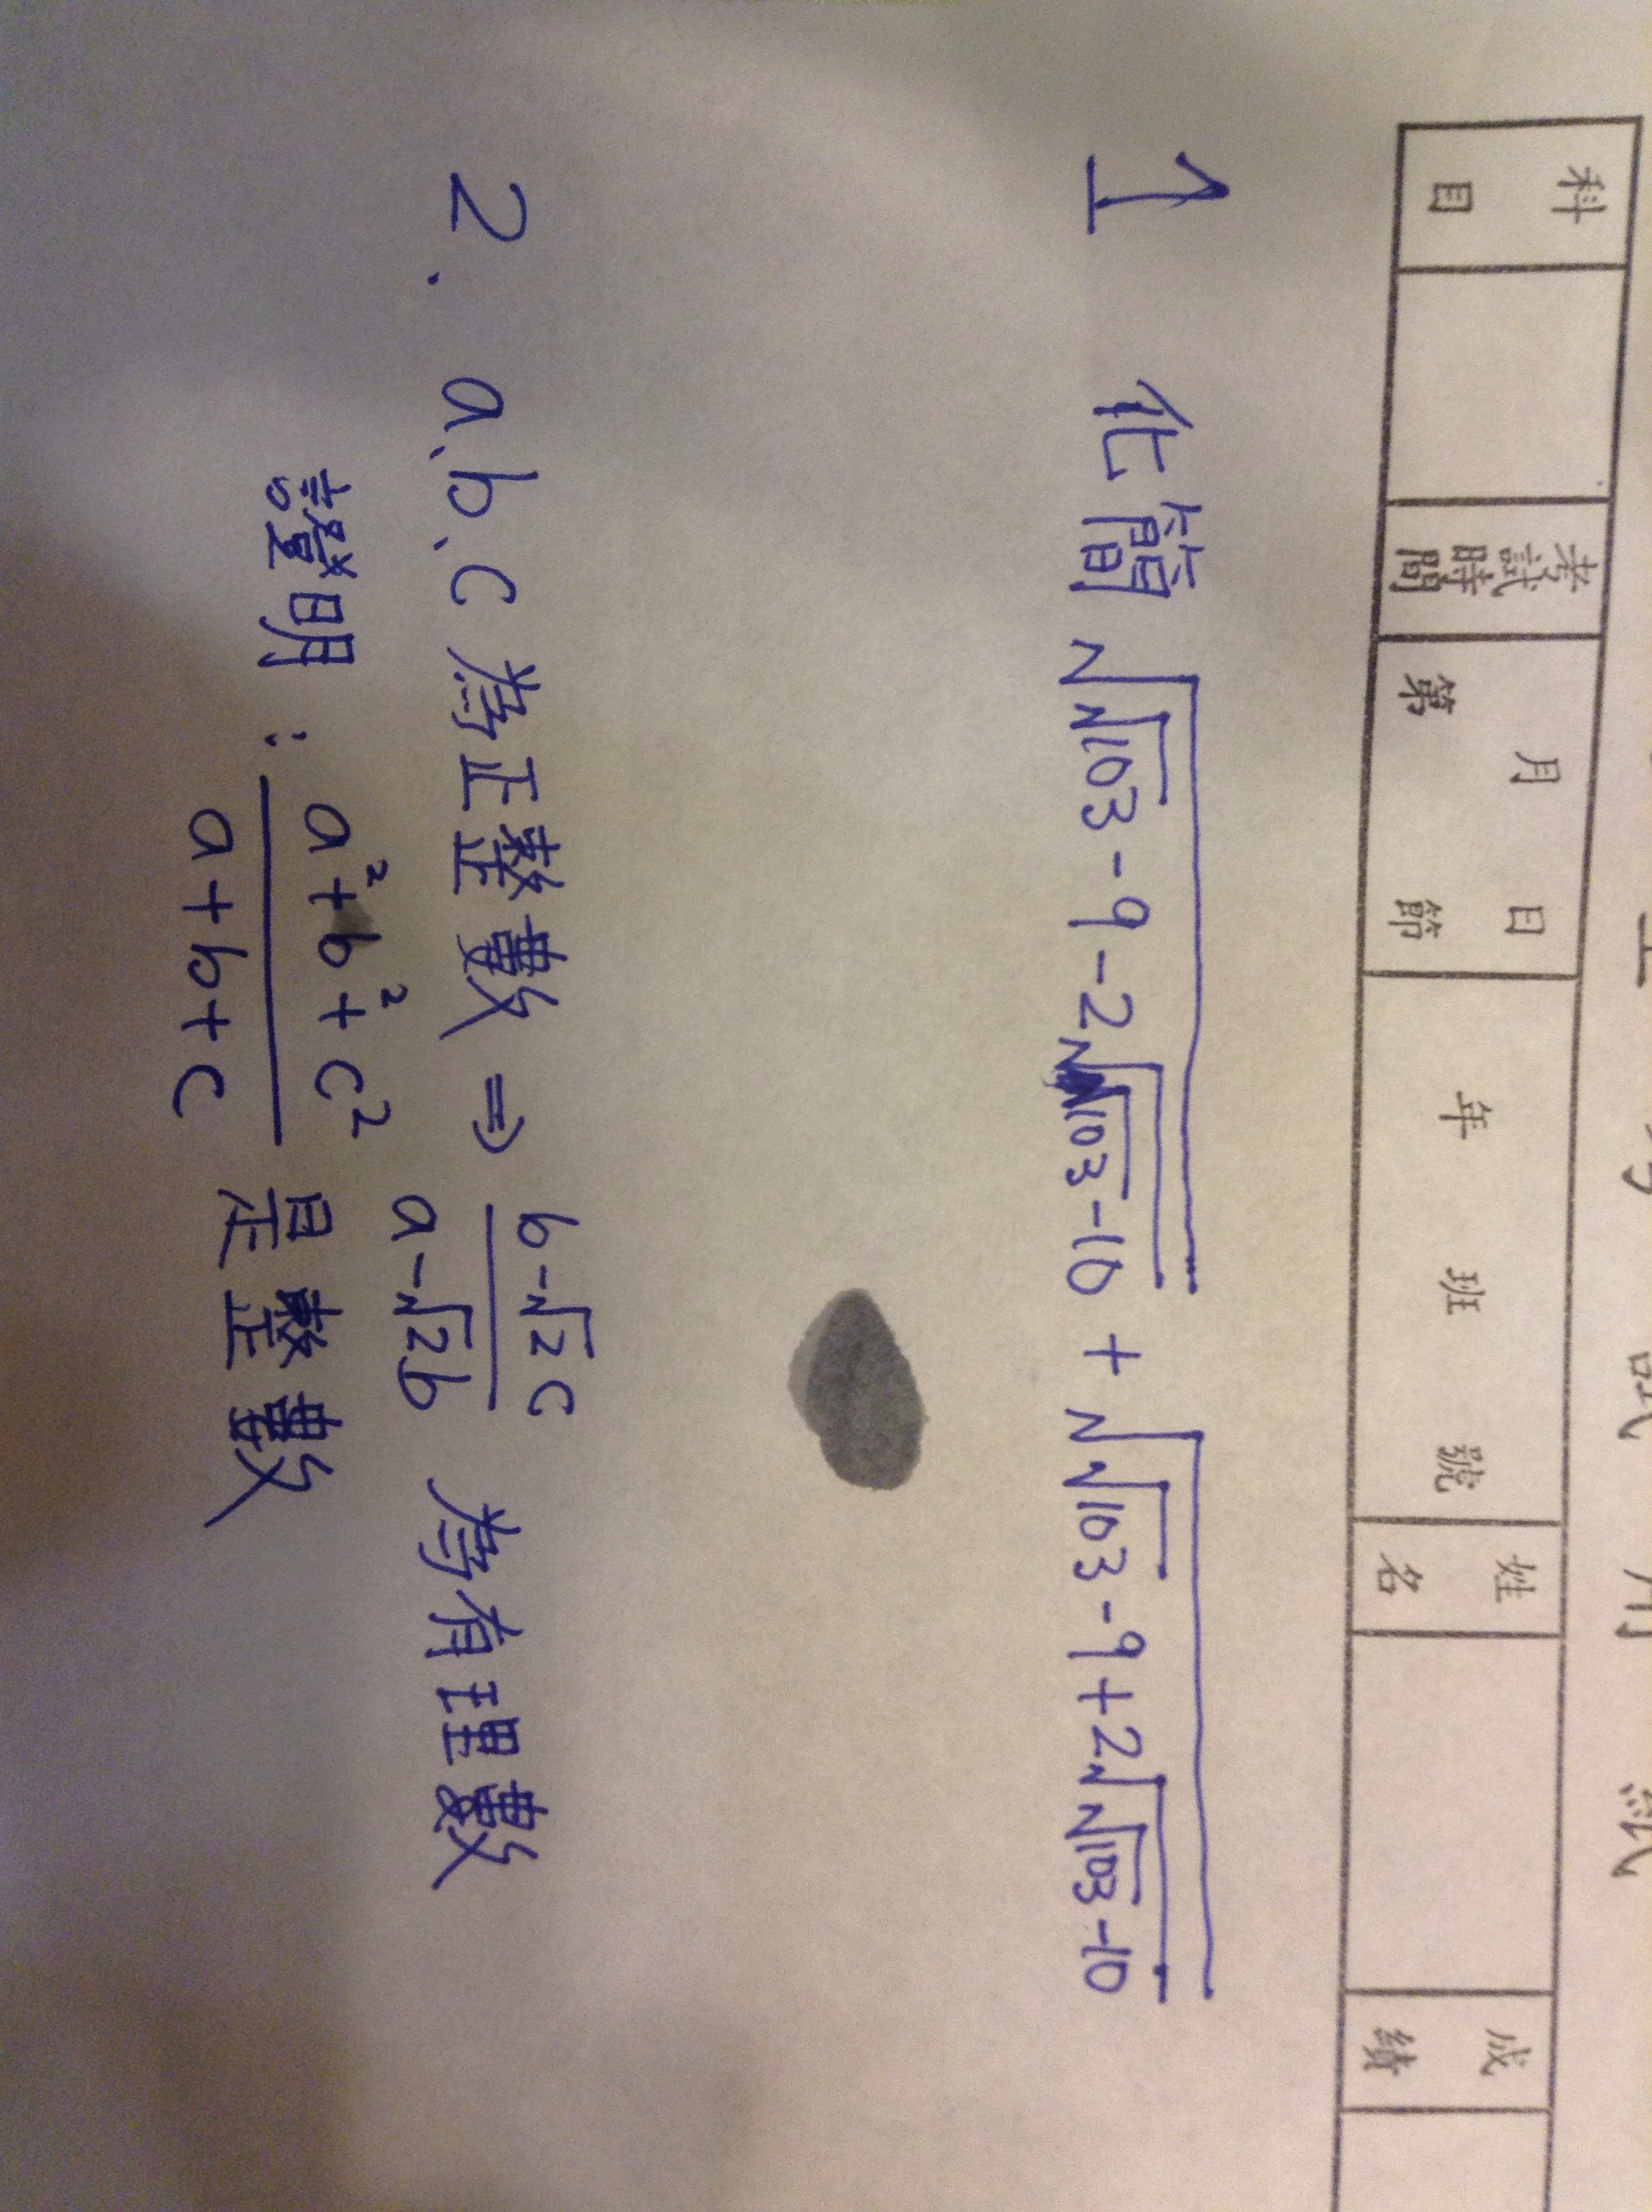 試 用 紙
科目 考試時間 月 日 第 節 年 班 號 姓名 成績
1 化簡 √(√103 - 9 - 2√(√103 - 10)) + √(√103 - 9 + 2√(√103 - 10))
2. a、b、c 為正整數 ⇒ (b - √2 c)/(a - √2 b) 為有理數
證明：(a² + b² + c²)/(a + b + c) 是整數